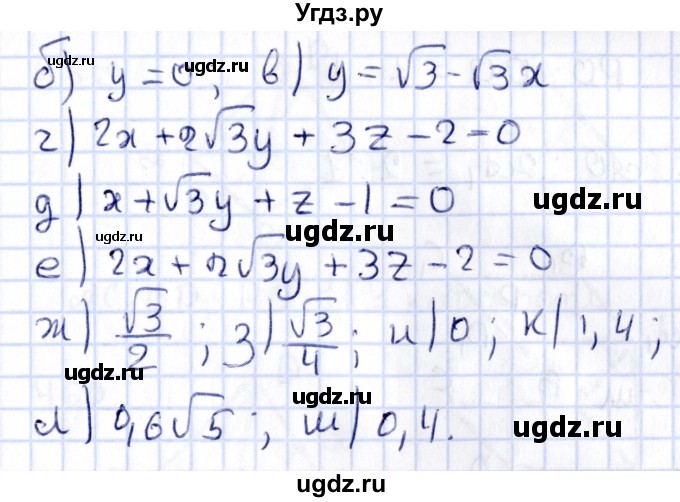 Угдз.ру
б) y = 0; в) y = √3 - √3x
г) 2x + 2√3y + 3z - 2 = 0
д) x + √3y + z - 1 = 0
е) 2x + 2√3y + 3z - 2 = 0
ж) √3/2; з) √3/4; и) 0; к) 1,4;
л) 0,6√5; м) 0,4.
ugdz.ru
ugdz.ru
ugdz.ru
ugdz.ru
ugdz.ru
ugdz.ru
ugdz.ru
ugdz.ru
ugdz.ru
ugdz.ru
ugdz.ru
ugdz.ru